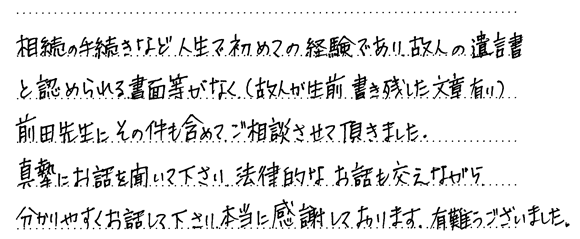 相続の手続きなど人生で初めての経験であり、故人の遺言書
と認められる書面等がなく（故人が生前書き残した文章有り）
前田先生にその件も含めてご相談させて頂きました。
真摯にお話を聞いて下さり、法律的なお話も交えながら
分かりやすくお話して下さり本当に感謝しております。有難うございました。